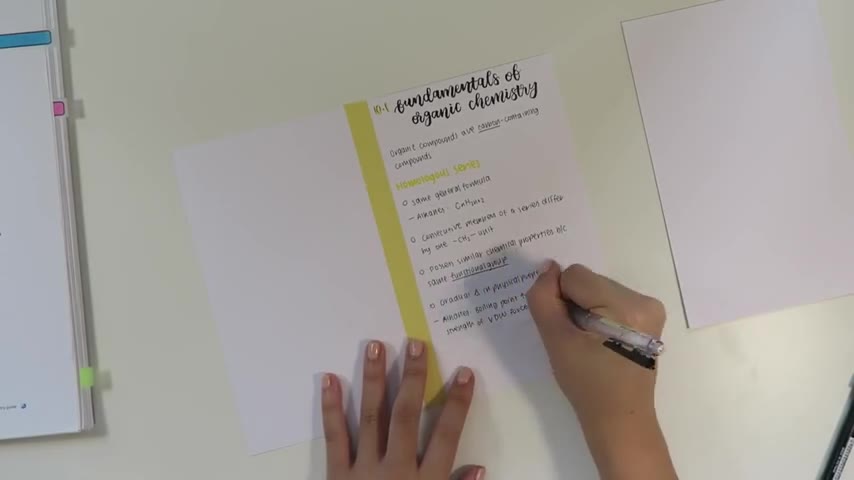 10.1 fundamentals of
organic chemistry
Organic compounds are carbon-containing
compounds
Homologous series
○ same general formula
- Alkanes: CnH2n+2
○ consecutive members of a series differ
by one -CH2- unit
○ possess similar chemical properties b/c
same functional group
○ Gradual Δ in physical
- Alkanes: Boiling point
strength of VDW